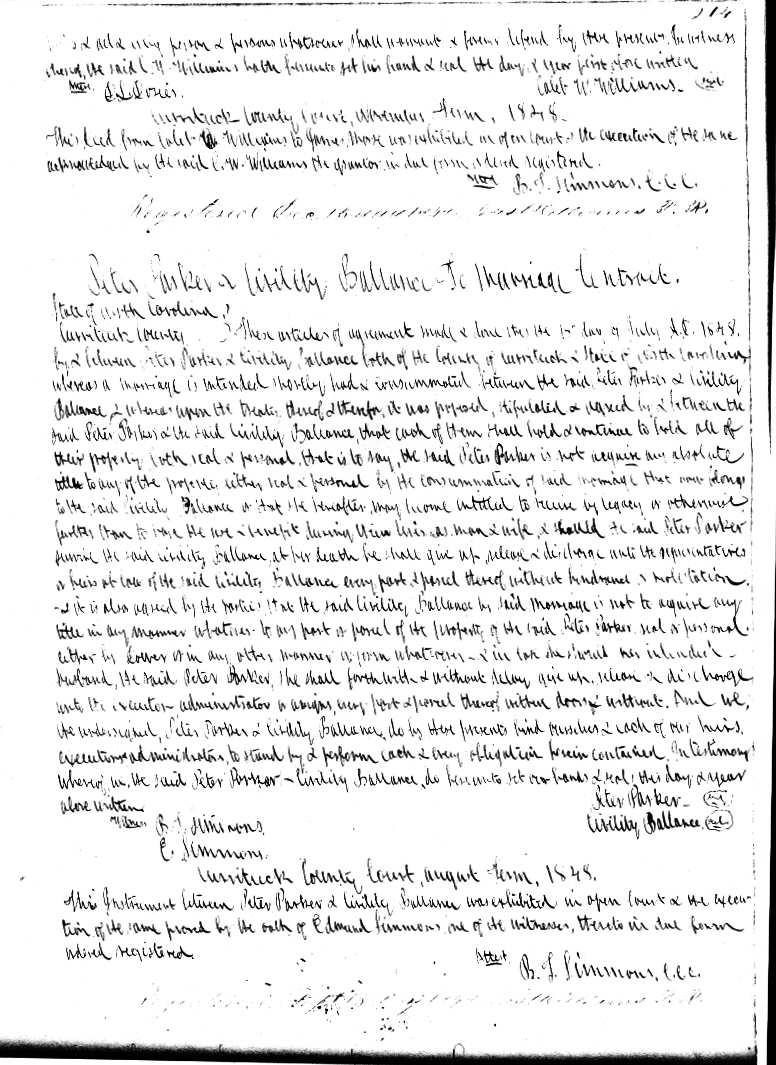 214
& all & every person & persons whatsoever, shall warrant & forever defend by these presents. In witness
whereof, the said C. W. Williams hath hereunto set his hand & seal the day & year first above written
Test S. L. Dozier. Caleb W. Williams. Seal
Currituck County Court, November Term, 1848.
This deed from Caleb W. Williams to was exhibited in open court & the execution of the same
acknowledged by the said C. W. Williams the grantor in due form ordered registered.
Test B. T. Simmons, C.C.C.
Registered
Peter Parker & Civility Ballance To Marriage Contract.
State of North Carolina,
Currituck County These articles of agreement made & done this the 15 day of July A.D. 1848.
by & between Peter Parker & Civility Ballance both of the County of Currituck & State of North Carolina,
whereas a marriage is intended shortly had & consummated between the said Peter Parker & Civility
Ballance, & whereas upon the treaty thereof & therefor, it was proposed, stipulated & agreed by & between the
said Peter Parker & the said Civility Ballance, that each of them shall hold & continue to hold all of
their property both real & personal, that is to say, the said Peter Parker is not acquire any absolute
title to any of the property either real & personal by the consummation of said marriage that now belongs
to the said Civility Ballance or that she hereafter may become entitled to receive by legacy or otherwise
further than to have the use & benefit during their lives as man & wife, & should the said Peter Parker
survive the said Civility Ballance, at her death he shall give up, release & discharge unto the representatives
or heirs at law of the said Civility Ballance every part & parcel thereof without hindrance or molestation.
& it is also agreed by the parties that the said Civility Ballance by said marriage is not to acquire any
title in any manner whatever to any part or parcel of the property of the said Peter Parker real or personal
either by dower or in any other manner or form whatsoever & in case she should her intended
husband, the said Peter Parker, she shall forthwith & without delay give up, release & discharge
unto the executor administrator or assigns, every part & parcel thereof within doors & without. And we,
the undersigned, Peter Parker & Civility Ballance, do by these presents bind ourselves & each of our heirs,
executors administrators, to stand by & perform each & every obligation herein contained. In testimony
whereof, we, the said Peter Parker Civility Ballance, do hereunto set our hands & seals this day & year
above written.
Witness B. T. Simmons. Peter Parker Seal
E. Simmons. Civility Ballance, Seal
Currituck County Court, August Term, 1848.
This Instrument between Peter Parker & Civility Ballance was exhibited in open Court & the execu-
tion of the same proved by the oath of Edmund Simmons, one of the witnesses, thereto in due form
ordered registered.
Attest B. T. Simmons, C.C.C.